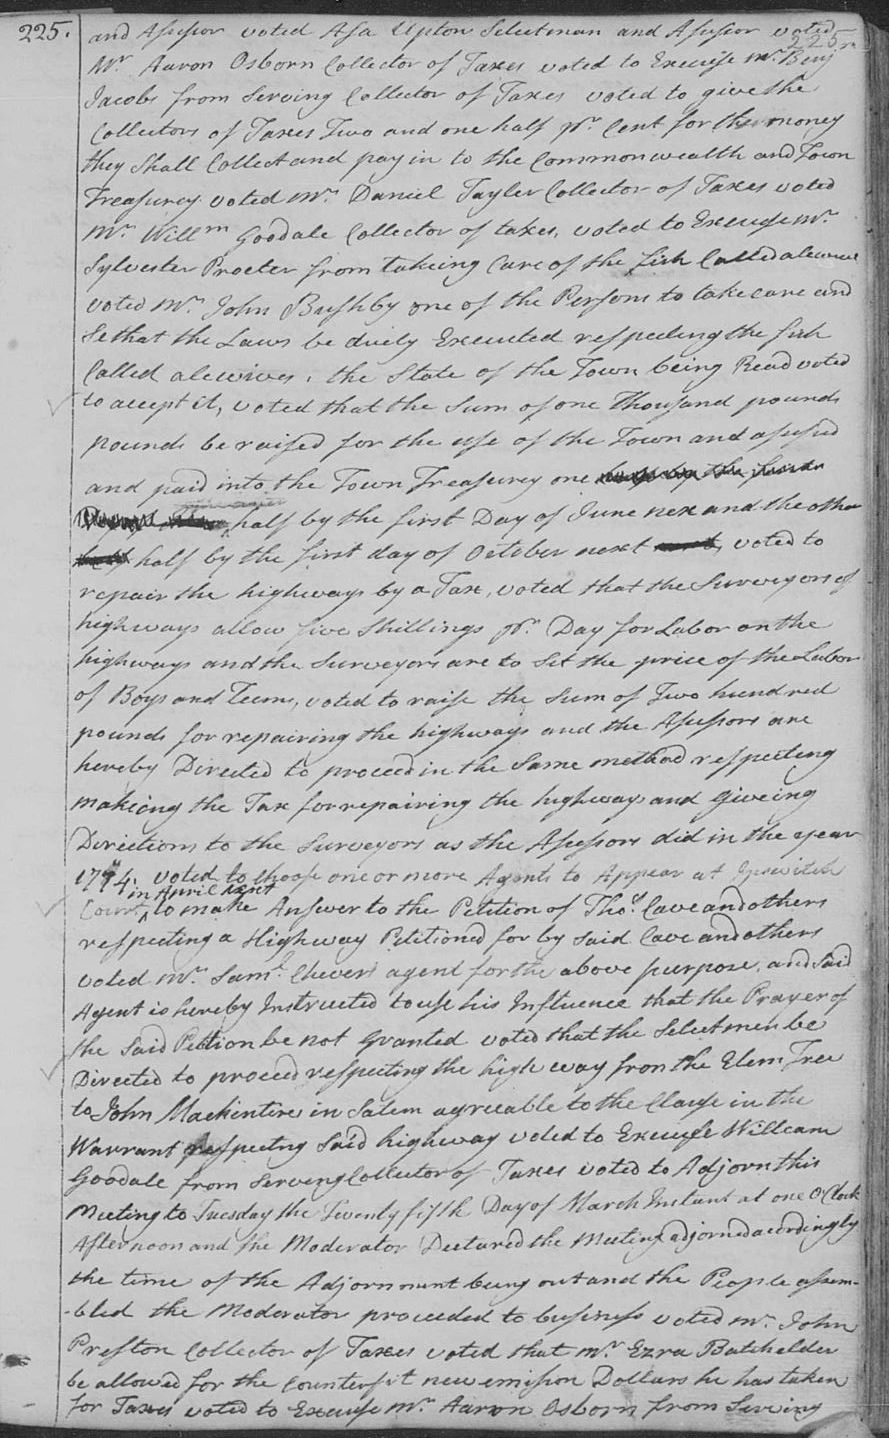 225.
225
and Assessor voted Asa Upton Selectman and Assessor voted
Mr Aaron Osborn Collector of Taxes voted to Excuse Mr. Benjn
Jacobs from Serving Collector of Taxes voted to give the
Collectors of Taxes Two and one half pr. Cent for the money
they Shall Collect and pay in to the Commonwealth and Town
Treasurey voted Mr. Daniel Tayler Collector of Taxes voted
Mr. Willm Goodale Collector of taxes, voted to Excuse Mr.
Sylvester Procter from takeing Care of the fish Called alewive
voted Mr. John Bushby one of the Persons to take care and
Se that the Laws be duely Executed respecting the fish
Called alewives. the State of the Town being Read voted
to accept it, voted that the Sum of one Thousand pounds
pounds be raised for the use of the Town and assessed
and paid into the Town Treasurey one
half by the first Day of June nex and the other
half by the first day of October next voted to
repair the highways by a Tax, voted that the Surveyors of
highways allow five Shillings pr. Day for Labor on the
highways and the Surveyors are to Set the price of the Labor
of Boys and Teems, voted to raise the Sum of Two hundred
pounds for repairing the highways and the Assessors are
hereby Directed to proceed in the Same method respecting
makeing the Tax for repairing the highways and giveing
Directions to the Surveyors as the Assessors did in the year
1794, voted to Choose one or more Agents to Appear at Ipswitch
in April next
Court to make Answer to the Petition of Thos. Cave and others
respecting a Highway Petitioned for by Said Cave and others
voted Mr. Saml. Chever agent for the above purpose, and Said
Agent is hereby Instructed to use his Influence that the Prayer of
the Said Petition be not Granted voted that the Selectmen be
Directed to proceed respecting the high way from the Elem Tree
to John Mackintire in Salem agreeable to the Clause in the
Warrant respectng Said highway voted to Excuse Willeam
Goodale from Serveng Collector of Taxes voted to Adjorn this
Meeting to Tuesday the Twenty fifth Day of March Instant at one O'Clock
Afternoon and the Moderator Declared the Meeting adjorned acordingly
the time of the Adjornment being out and the People assem-
-bled the Moderator proceeded to business voted Mr. John
Preston Collector of Taxes voted that Mr. Ezra Batchelder
be allowed for the Counterfit new emision Dollars he has taken
for Taxes voted to Excuse Mr. Aaron Osborn from Serveing